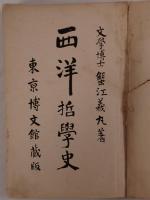 文學博士 蟹江義丸著
西洋哲學史
東京博文館蔵版